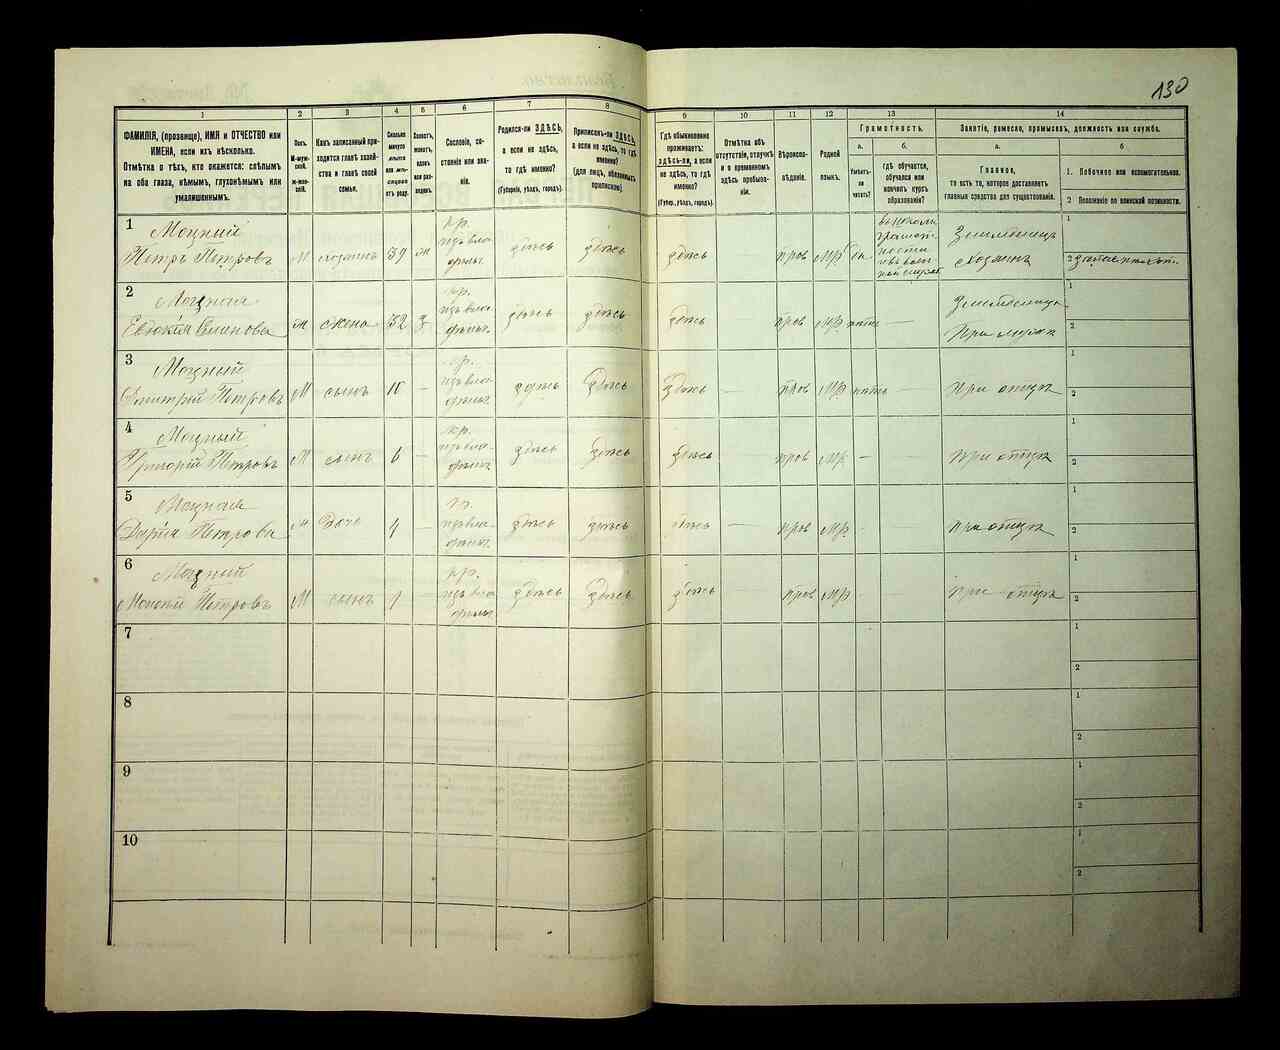 130
1
2
3
4
5
6
7
8
9
10
11
12
13
14
ФАМИЛІЯ, (прозвище), ИМЯ и ОТЧЕСТВО или
ИМЕНА, если ихъ нѣсколько.
Отмѣтка о тѣхъ, кто окажется: слѣпымъ
на оба глаза, нѣмымъ, глухонѣмымъ или
умалишеннымъ.
Полъ.
М-муж-
ской.
ж-жен-
скій.
Какъ записанный при-
ходится главѣ хозяй-
ства и главѣ своей
семьи.
Сколько
минуло
лѣтъ
или мѣ-
сяцевъ
отъ роду.
Холостъ,
женатъ,
вдовъ
или раз-
веденъ.
Сословіе, со-
стояніе или зва-
ніе.
Родился-ли ЗДѢСЬ,
а если не здѣсь,
то гдѣ именно?
(Губернія, уѣздъ, городъ).
Приписанъ-ли ЗДѢСЬ,
а если не здѣсь, то гдѣ
именно?
(для лицъ, обязанныхъ
припискою).
Гдѣ обыкновенно
проживаетъ:
здѣсь-ли, а если
не здѣсь, то гдѣ
именно?
(Губер., уѣздъ, городъ).
Отмѣтка объ
отсутствіи, отлучкѣ
и о временномъ
здѣсь пребыва-
ніи.
Вѣроиспо-
вѣданіе.
Родной
языкъ.
Грамотность.
а.
Умѣетъ-
ли
читать?
б.
гдѣ обучается,
обучался или
кончилъ курсъ
образованія?
Занятіе, ремесло, промыселъ, должность или служба.
а.
Главное,
то есть то, которое доставляетъ
главныя средства для существованія.
б
1. Побочное или вспомогательное.
2 Положеніе по воинской повинности.
1
Моцный
Петръ Петровъ
М
хозяинъ
39
ж
кр.
изъ вла
дѣльч.
здѣсь
здѣсь
здѣсь
прав
МР
да
Земледѣлецъ
хозяинъ
1
2
2
Моцная
жена
32
кр.
изъ вла
дѣльч.
здѣсь
здѣсь
здѣсь
прав
МР
нѣтъ
—
Земледѣлецъ
При мужѣ
1
2
3
Моцный
Дмитрій Петровъ
М
сынъ
10
—
кр.
изъ вла
дѣльч
здѣсь
здѣсь
здѣсь
—
прав
МР
нѣтъ
—
При отцѣ
1
2
4
Моцный
Григорій Петровъ
М
сынъ
6
—
кр.
изъ вла
дѣльч
здѣсь
здѣсь
здѣсь
—
прав
МР
—
При отцѣ
1
2
5
Моцная
Дарія Петрова
дочь
4
—
кр.
изъ вла
дѣльч
здѣсь
здѣсь
здѣсь
—
прав
МР
При отцѣ
1
2
6
Моцный
Петровъ
М
сынъ
1
—
кр.
изъ вла
дѣльч
здѣсь
здѣсь
здѣсь
прав
МР
—
При отцѣ
1
2
7
1
2
8
1
2
9
1
2
10
1
2